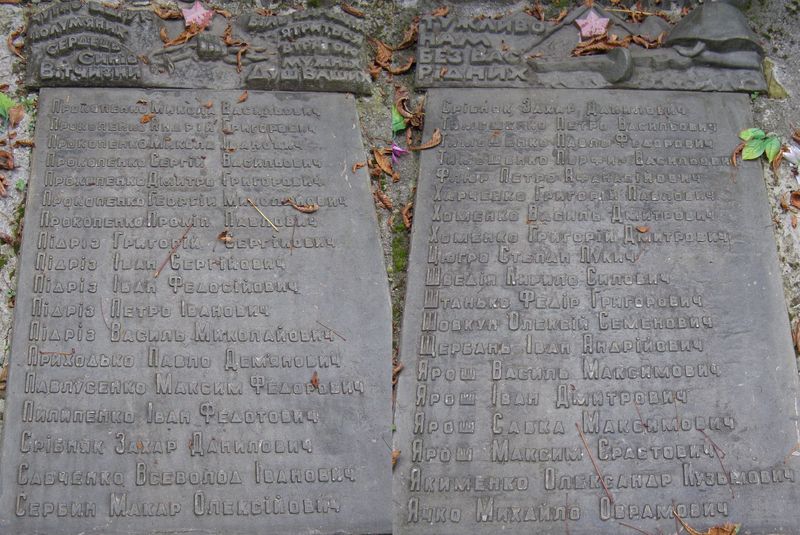 СЕРДЕЦЬ
СИНІВ
ВІТЧИЗНИ
ПРОКОПЕНКО МИКОЛА ВАСИЛЬОВИЧ
ПРОКОПЕНКО АНДРІЙ ГРИГОРОВИЧ
ПРОКОПЕНКО МИКОЛА ІВАНОВИЧ
ПРОКОПЕНКО СЕРГІЙ ВАСИЛЬОВИЧ
ПРОКОПЕНКО ДМИТРО ГРИГОРОВИЧ
ПРОКОПЕНКО ГЕОРГІЙ МИКОЛАЙОВИЧ
ПРОКОПЕНКО ПРОКІП ПАВЛОВИЧ
ПІДРІЗ ГРИГОРІЙ СЕРГІЙОВИЧ
ПІДРІЗ ІВАН СЕРГІЙОВИЧ
ПІДРІЗ ІВАН ФЕДОСІЙОВИЧ
ПІДРІЗ ПЕТРО ІВАНОВИЧ
ПІДРІЗ ВАСИЛЬ МИКОЛАЙОВИЧ
ПРИХОДЬКО ПАВЛО ДЕМ'ЯНОВИЧ
ПАВЛУСЕНКО МАКСИМ ФЕДОРОВИЧ
ПИЛИПЕНКО ІВАН ФЕДОТОВИЧ
СРІБНЯК ЗАХАР ДАНИЛОВИЧ
САВЧЕНКО ВСЕВОЛОД ІВАНОВИЧ
СЕРБИН МАКАР ОЛЕКСІЙОВИЧ
ТУЖЛИВО
НАМ
БЕЗ ВАС
РІДНИХ
СРІБНЯК ЗАХАР ДАНИЛОВИЧ
ТИМОШЕНКО ПЕТРО ВАСИЛЬОВИЧ
ТИМОШЕНКО ПАВЛО ФЕДОРОВИЧ
ТИМОШЕНКО ПОРФИР ВАСИЛЬОВИЧ
ПЕТРО
ХАРЧЕНКО ГРИГОРІЙ ПАВЛОВИЧ
ХОМЕНКО ВАСИЛЬ ДМИТРОВИЧ
ХОМЕНКО ГРИГОРІЙ ДМИТРОВИЧ
ЦЮГРО СТЕПАН ЛУКИЧ
ШВЕДІЯ КИРИЛО СИЛОВИЧ
ШТАНЬКО ФЕДІР ГРИГОРОВИЧ
ШОВКУН ОЛЕКСІЙ СЕМЕНОВИЧ
ЩЕРБАНЬ ІВАН АНДРІЙОВИЧ
ЯРОШ ВАСИЛЬ МАКСИМОВИЧ
ЯРОШ ІВАН ДМИТРОВИЧ
ЯРОШ САВКА МАКСИМОВИЧ
ЯРОШ МАКСИМ ЄРАСТОВИЧ
ЯКИМЕНКО ОЛЕКСАНДР КУЗЬМОВИЧ
ЯЧКО МИХАЙЛО ОВРАМОВИЧ